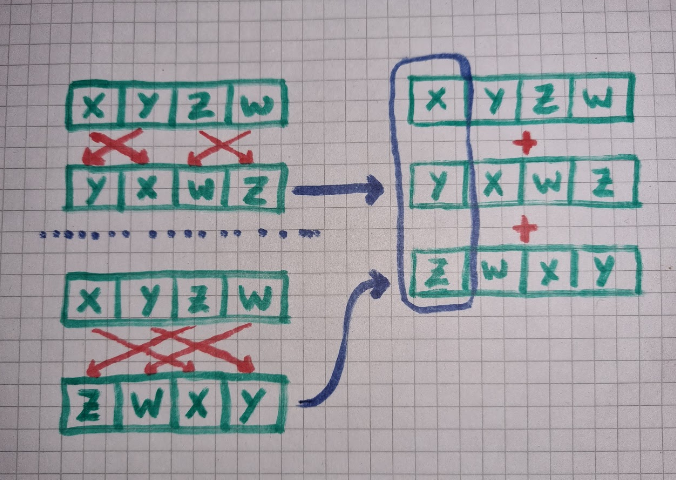 X Y Z W
Y X W Z
X Y Z W
Z W X Y
X Y Z W
+
Y X W Z
+
Z W X Y